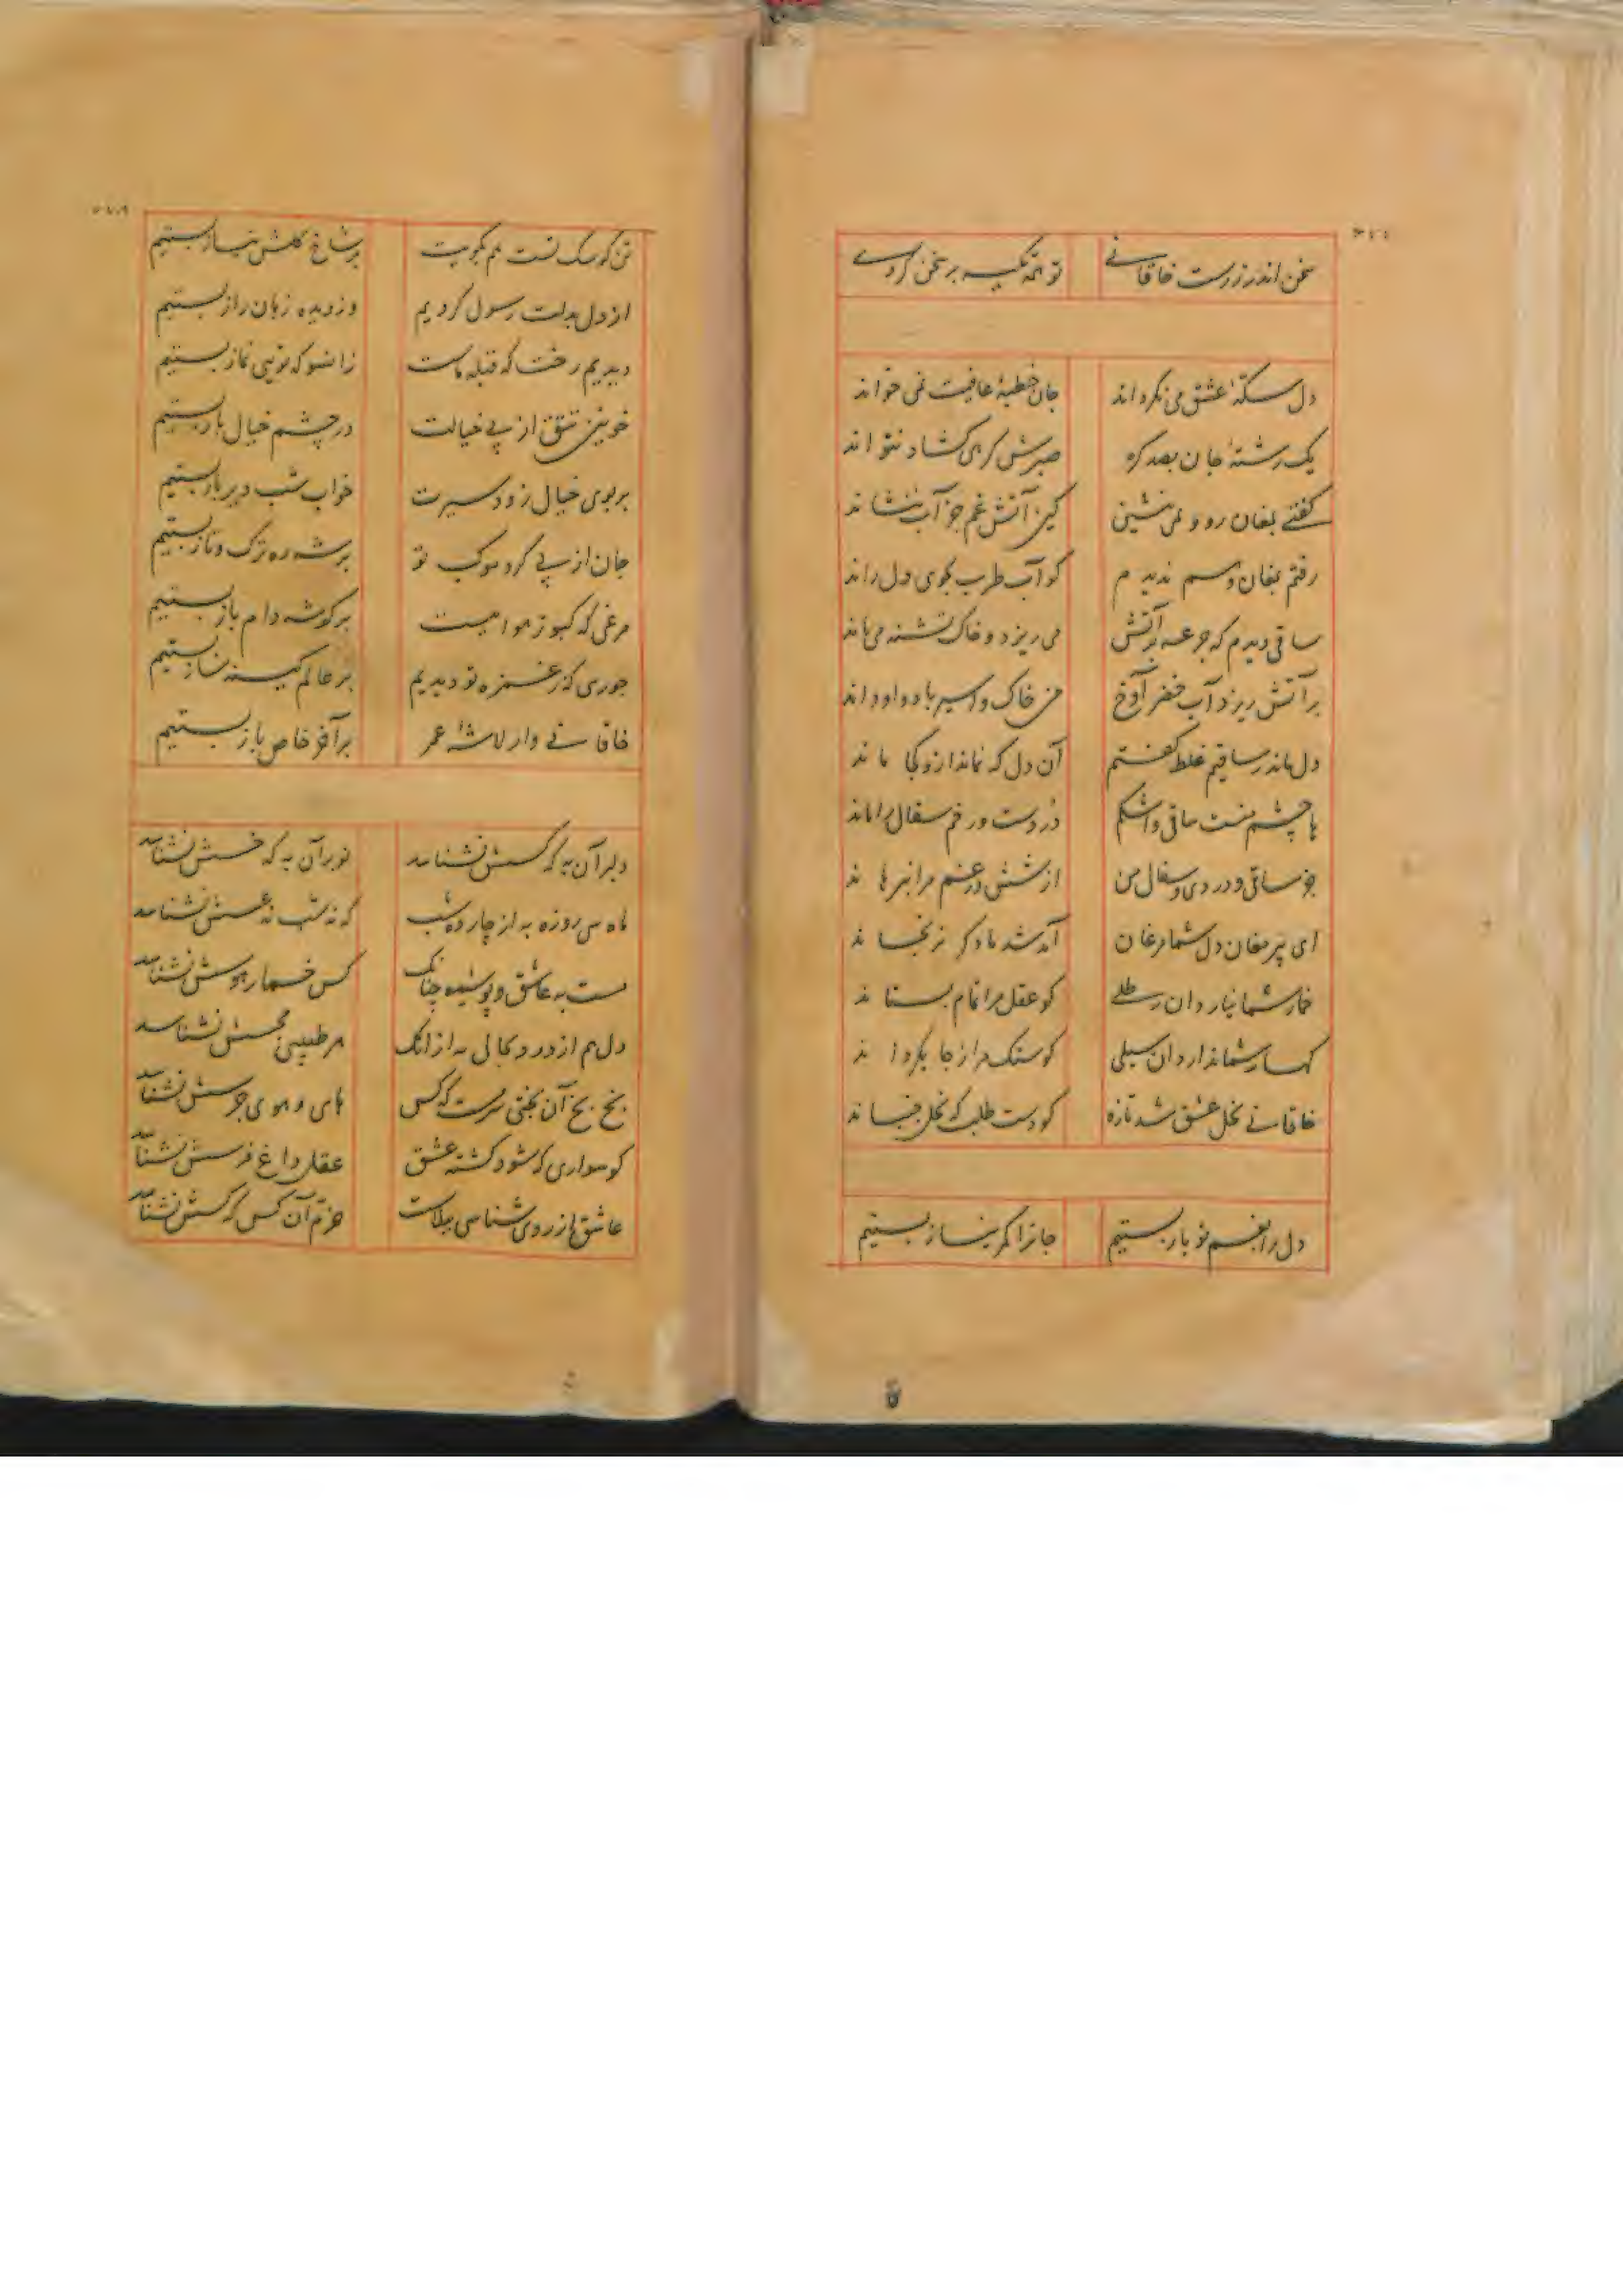 سخن اندر زرست خاقانی تو همه تکیه بر سخن کردی
دل سکهٔ عشق می نگرداند جان خطبهٔ عافیت نمی خواند
یک رشتهٔ جان بصد گره صبرش گرهی گشاد نتواند
گفتی بمغان رو و می نشین کین آتش غم جز آب ننشاند
رفتم بمغان و هم ندیدم کو آب طرب بجوی دل راند
ساقی دیدم که جرعه بر آتش می ریزد و خاک تشنه می ماند
بر آتش ریزد آب خضر آوخ من خاک و اسیر باد و او داند
دل ماند ز ساقیم غلط گفتم آن دل که نماند ازو کجا ماند
با چشم منست ساقی و اشکم درد دست و رخم سفال را ماند
جز ساقی و دردی و سفال من از ششدر غم مرا نبرهاند
ای پیر مغان دل شما مرغان آمد شد ما دگر نرنجاند
خمار شما نیارد آن رطلی کو عقل مرا تمام بستاند
کهسار شما ندارد آن سیلی کو سنک مرا ز جا بگرداند
خاقانی نخل عشق شد تازه کو دست طلب که نخل جنباند
دل را بغم تو باز بستیم جانرا کمر نیاز بستیم
تن کو سک تست هم بکویت بر شاخ گلش نیاز بستیم
از دل بدلت رسول کردیم وز دیده زبان راز بستیم
دیدیم رخت که قبلهٔ ماست زانسو که تویی نماز بستیم
خونین تتق از پی خیالت در چشم خیال باز بستیم
بر بوی خیال زود سیرت خواب شب دیر باز بستیم
جان از پی گرد موکب تو بر شه ره ترک و تاز بستیم
مرغی که کبوتر هوائیست بر گوشه دام باز بستیم
جوری که ز غمزه تو دیدیم بر عالم کینه ساز بستیم
خاقانی وار لاشهٔ عمر بر آخر خاص باز بستیم
دلبر آن به که کسش نشناسد نوبر آن به که خسش نشناسد
ماه سی روزه به از چارده شب که نه شب نه عسش نشناسد
مست به عاشق و پوشیده چنانک کس خمار هوسش نشناسد
دل هم از درد بجانی به از انک هر طبیبی مجسش نشناسد
بخ بخ آن بختی سرمست که کس های و هوی جرسش نشناسد
کو سواری که شود کشته عشق عقل داغ فرسش نشناسد
عاشق از روی شناسی ببلاست خرم آن کس که کسش نشناسد